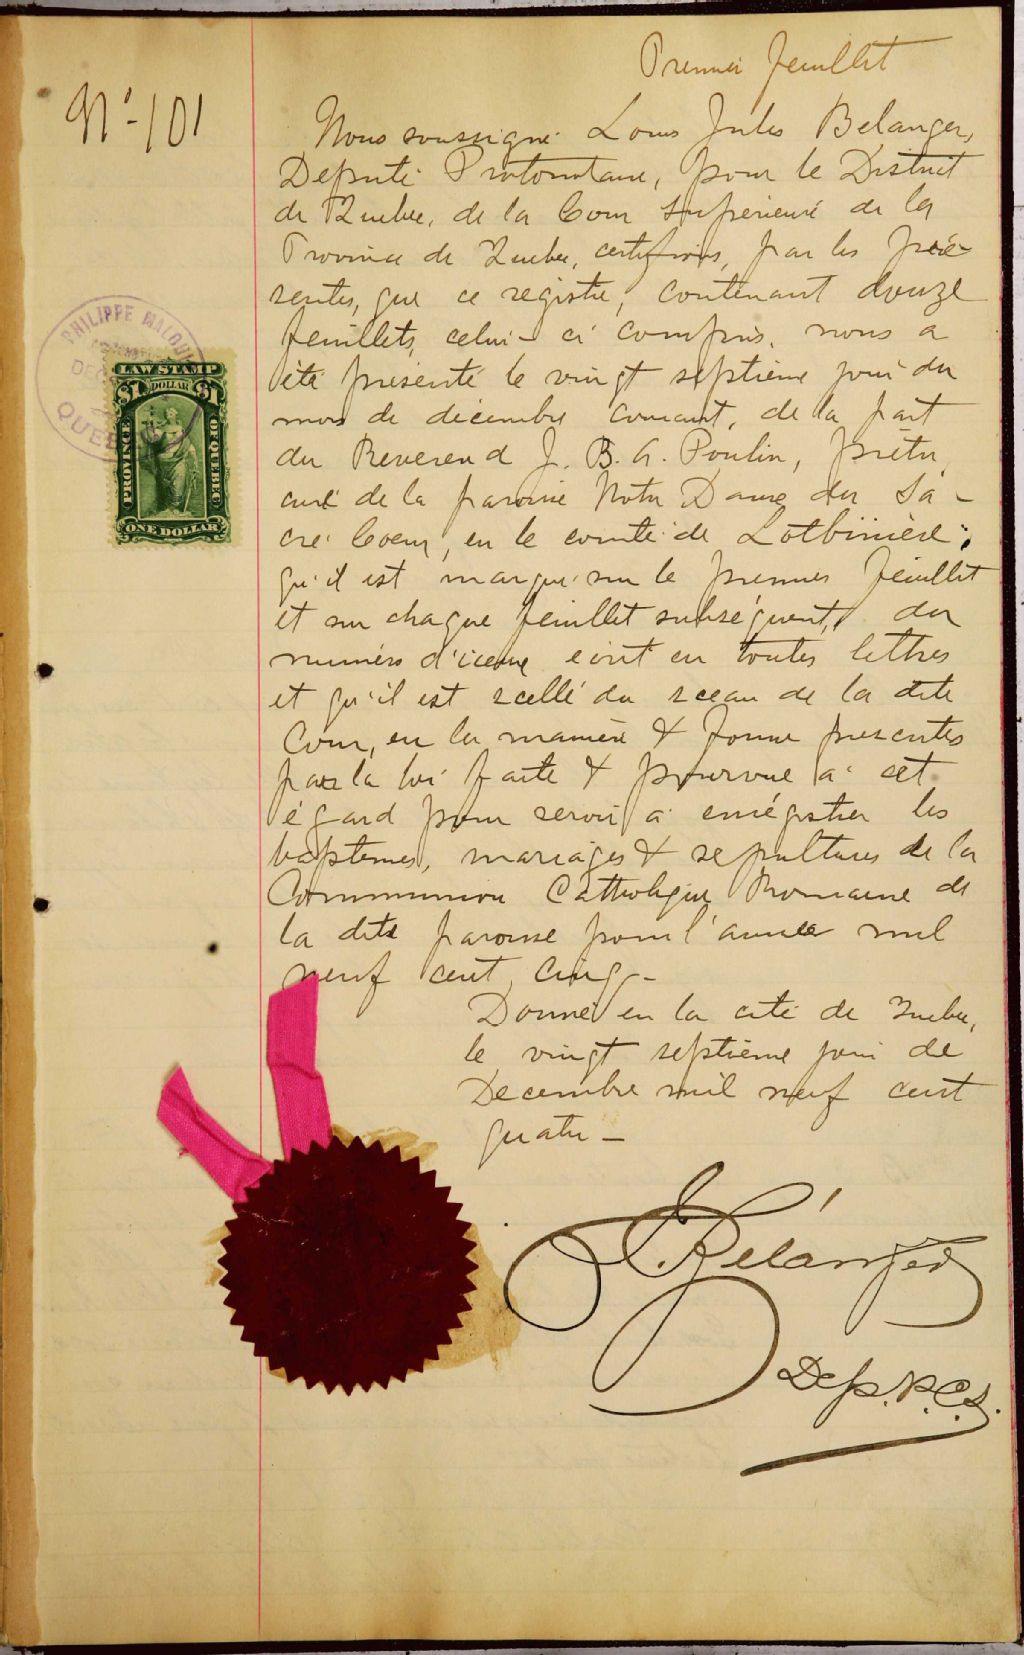 Premier feuillet
N° 101
Nous soussigné Louis Jules Belanger,
Deputé Protonotaire, pour le District
de Quebec, de la Cour Supérieure de la
Province de Quebec, certifions, par les pré-
sentes, que ce registre, contenant douze
feuillets, celui-ci compris, nous a
été présenté le vingt septième jour du
mois de décembre courant, de la part
du Reverend J. B. A. Poulin, prêtre,
curé de la paroisse Notre Dame du Sa-
cré Coeur, en le comté de Lotbinière;
qu'il est marqué sur le premier feuillet
et sur chaque feuillet subséquent, du
numéro d'icelui écrit en toutes lettres
et qu'il est scellé du sceau de la dite
Cour, en la manière & forme prescrites
par la loi faite & pourvue à cet
égard pour servir à enrégistrer les
baptemes, mariages & sepultures de la
Communion Catholique Romaine de
la dite paroisse pour l'année mil
neuf cent cinq -
Donné en la cité de Quebec,
le vingt septième jour de
Decembre mil neuf cent
quatre -
Bélanger
Dep. P.C.S.
PHILIPPE MALOUIN
DEC
QUEBEC
LAW STAMP
$1 DOLLAR $1
PROVINCE OF QUEBEC
ONE DOLLAR